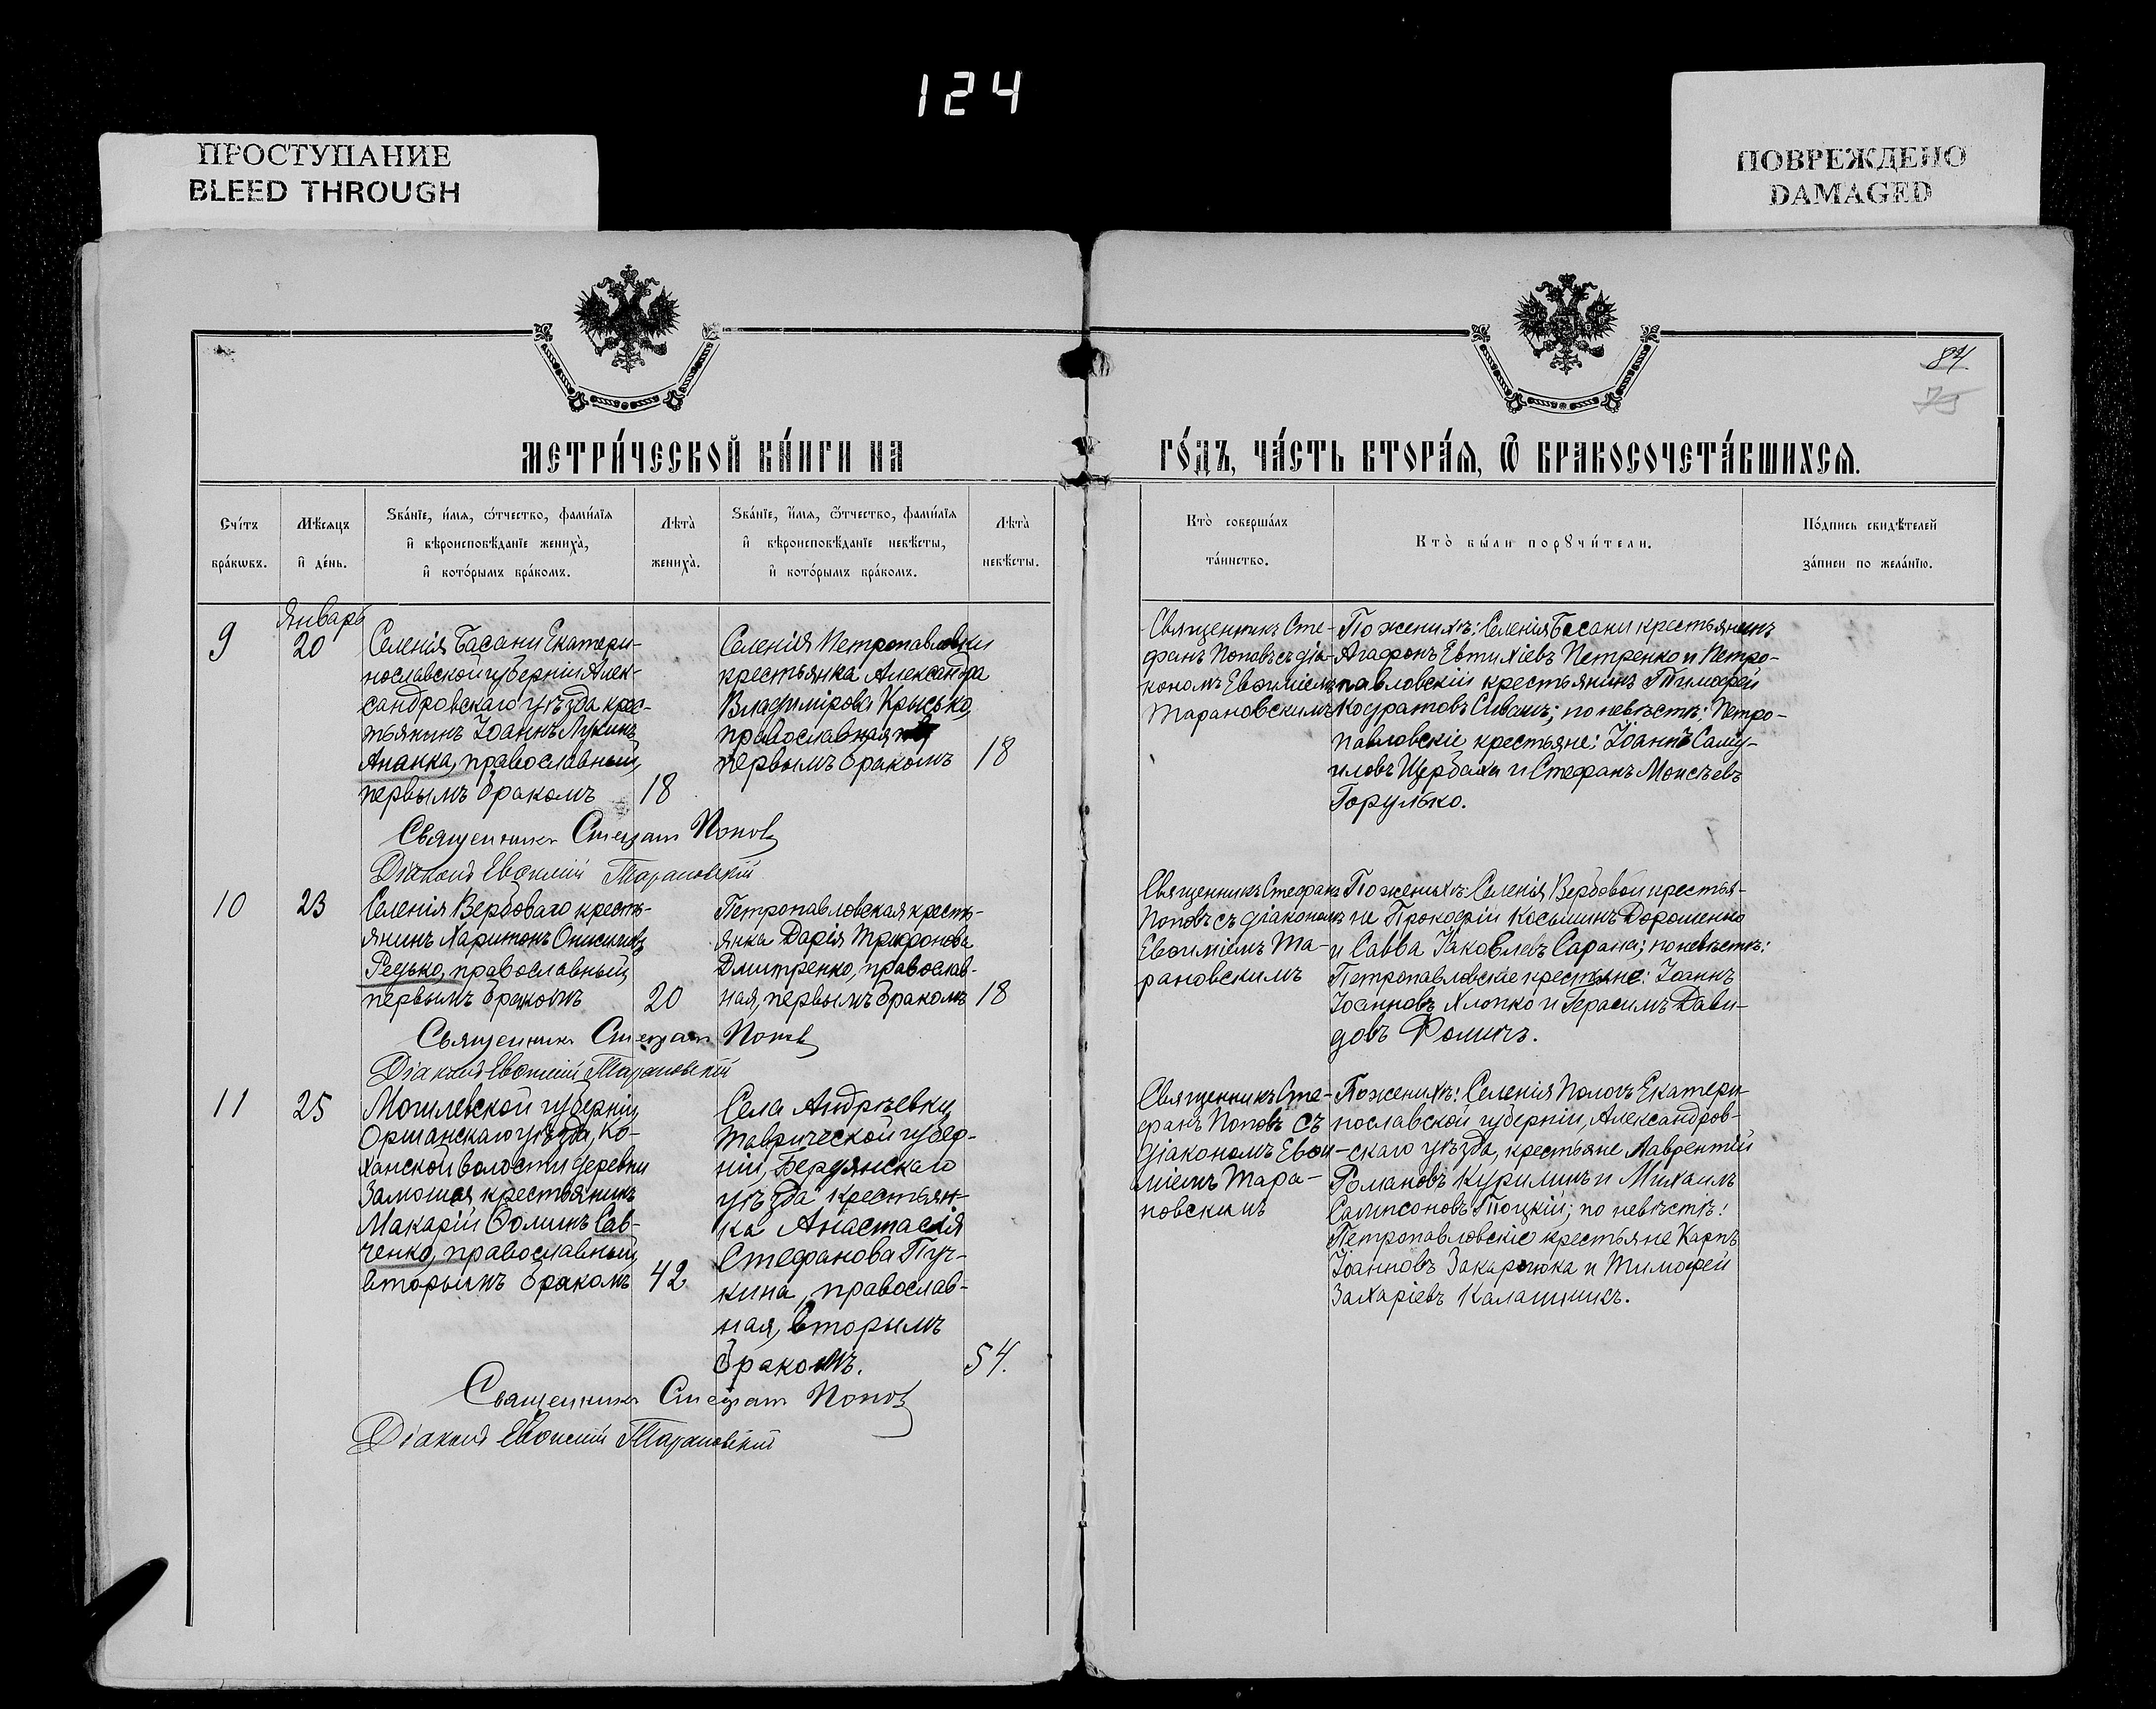 124
ПРОСТУПАНИЕ
BLEED THROUGH
ПОВРЕЖДЕНО
DAMAGED
84
75
МЕТРИ́ЧЕСКОЙ КНИ́ГИ НА
ГО́ДЪ, ЧА́СТЬ ВТОРА́Я, Ѿ БРАКОСОЧЕТА́ВШИХСЯ.
Сче́тъ бра́кѡвъ.
Мѣ́сяцъ и҆ де́нь.
Ѕва́нїе, и҆́мя, ѻ҆́тчество, фами́лїя
и҆ вѣроисповѣ́данїе жениха̀,
и҆ кото́рымъ бра́комъ.
Лѣта̀ жениха̀.
Ѕва́нїе, и҆́мя, ѻ҆́тчество, фами́лїя
и҆ вѣроисповѣ́данїе невѣ́сты,
и҆ кото́рымъ бра́комъ.
Лѣта̀ невѣ́сты.
Кто̀ соверша́лъ
та́инство.
Кто̀ бы́ли порꙋчи́тели.
По́дпись свидѣ́телей
за́писи по жела́нїю.
9
Январь
20
Селенія Басани Екатери-
нославской губерніи Алек-
сандровскаго уѣзда крес-
тьянинъ Іоаннъ Лукинъ
Ананка, православный,
первымъ бракомъ
18
Селенія Петропавловки
крестьянка Александра
Владимірова Крысько,
православная
первымъ бракомъ
18
Священникъ Сте-
фанъ Поповъ съ діа-
кономъ Евѳиміемъ
Тарановскимъ
По женихѣ: Селенія Басани крестьянинъ
Агафонъ Евтихіевъ Петренко и Петро-
павловскій крестьянинъ Тимофей
Кодратовъ Сивашъ; по невѣстѣ: Петро-
павловскіе крестьяне: Іоаннъ Саму-
иловъ Щербаха и Стефанъ Моисѣевъ
Горулько.
Священникъ Стефанъ Поповъ
Діаконъ Евѳимій Тарановскій
10
23
Селенія Вербоваго кресть-
янинъ Харитонъ Онисимовъ
Редько, православный,
первымъ бракомъ
20
Петропавловская кресть-
янка Дарія Трифонова
Дмитренко, православ-
ная, первымъ бракомъ
18
Священникъ Стефанъ
Поповъ съ діакономъ
Евѳиміемъ Та-
рановскимъ
По женихѣ: Селенія Вербовой крестья-
не Прокофій Косьминъ Дорошенко
и Савва Іаковлевъ Сарана; по невѣстѣ:
Петропавловскіе крестьяне: Іоаннъ
Іоанновъ Хлопко и Герасимъ Дави-
довъ Фомичъ.
Священникъ Стефанъ Поповъ
Діаконъ Евѳимій Тарановскій
11
25
Могилевской губерніи,
Оршанскаго уѣзда, Ко-
ханской волости деревни
Замошая крестьянинъ
Макарій Ѳоминъ Сав-
ченко, православный,
вторымъ бракомъ
42
Села Андрѣевки,
Таврической губер-
ніи, Бердянскаго
уѣзда крестьян-
ка Анастасія
Стефанова Пуч-
кина, православ-
ная, вторымъ
бракомъ.
54.
Священникъ Сте-
фанъ Поповъ съ
діакономъ Евѳи-
міемъ Тара-
новскимъ
По женихѣ: Селенія Пологъ Екатери-
нославской губерніи, Александров-
скаго уѣзда, крестьяне Лаврентій
Романовъ Курилинъ и Михаилъ
Сампсоновъ Тоцкій; по невѣстѣ:
Петропавловскіе крестьяне Карпъ
Іоанновъ Закарлюка и Тимофей
Захаріевъ Калашникъ.
Священникъ Стефанъ Поповъ
Діаконъ Евѳимій Тарановскій